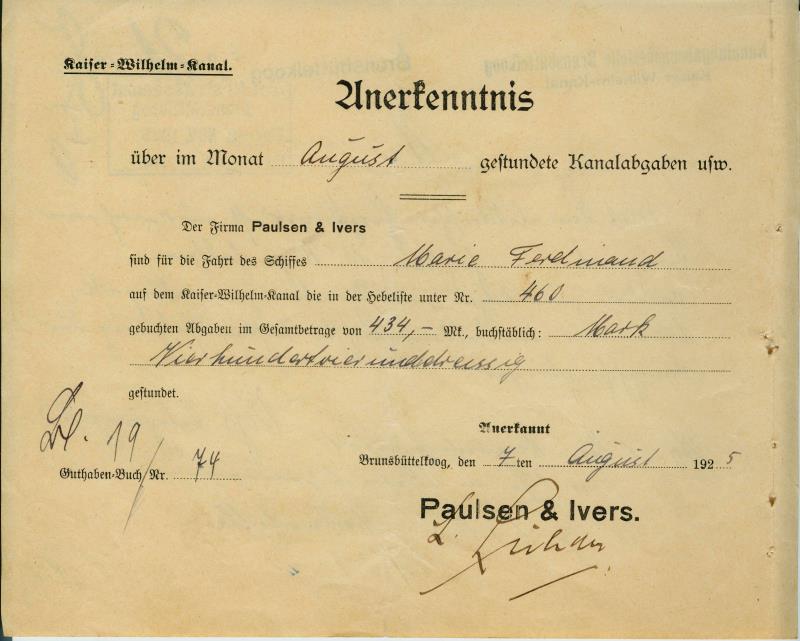 Kaiser-Wilhelm-Kanal.
Anerkenntnis
über im Monat August gestundete Kanalabgaben usw.
Der Firma Paulsen & Ivers
sind für die Fahrt des Schiffes Marie Ferdinand
auf dem Kaiser-Wilhelm-Kanal die in der Hebeliste unter Nr. 460
gebuchten Abgaben im Gesamtbetrage von 434,- Mk., buchstäblich: Mark
Vierhundertvierunddreissig
gestundet.
Anerkannt
Bl. 19
Guthaben-Buch Nr. 74
Brunsbüttelkoog, den 7ten August 1925
Paulsen & Ivers.